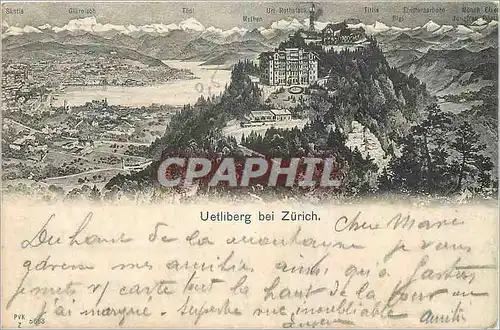 Säntis Glärnisch Tödi Ruchen Uri Rothstock Titlis Rigi Finsteraarhorn Mönch Eiger Jungfrau
CPAPHIL
Uetliberg bei Zürich.
Chère Marie
Du haut de la montagne je vous
adresse mes amitiés ainsi qu'a
je mets v/ carte sur la haut de la tour où
j'ai marqué. Superbe vue inoubliable
Amitiés
PVK
Z 5063